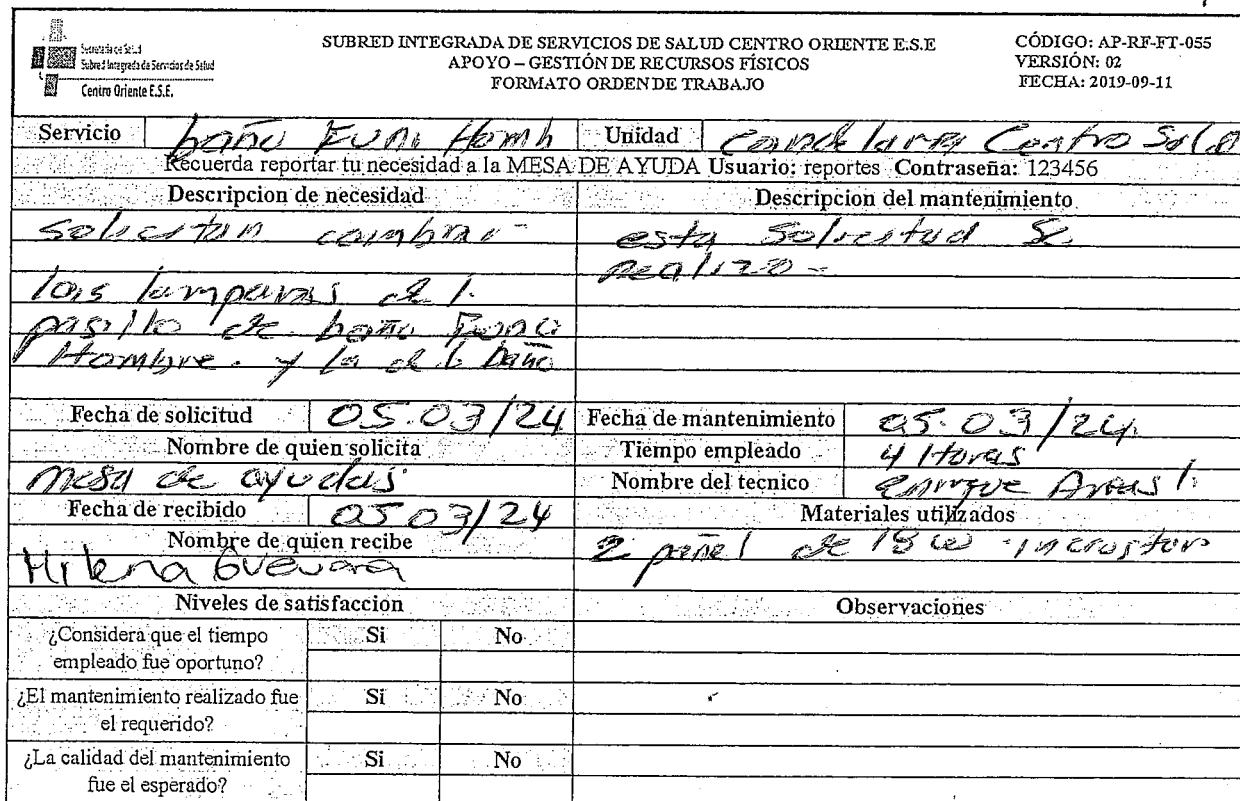 Secretaría de Salud
Subred Integrada de Servicios de Salud
Centro Oriente E.S.E.
SUBRED INTEGRADA DE SERVICIOS DE SALUD CENTRO ORIENTE E.S.E
APOYO – GESTIÓN DE RECURSOS FÍSICOS
FORMATO ORDEN DE TRABAJO
CÓDIGO: AP-RF-FT-055
VERSIÓN: 02
FECHA: 2019-09-11
Servicio baño Homb Unidad Candelaria Centro
Recuerda reportar tu necesidad a la MESA DE AYUDA Usuario: reportes Contraseña: 123456
Descripcion de necesidad
solicitan cambiar
las lamparas del
pasillo de baño
Hombre y la del baño
Descripcion del mantenimiento
esta solicitud se
realizo
Fecha de solicitud 05.03/24
Fecha de mantenimiento 05.03/24
Nombre de quien solicita
mesa de ayudas
Tiempo empleado 4 Horas
Nombre del tecnico enrique
Fecha de recibido 05 03/24
Nombre de quien recibe
Milena Guevara
Materiales utilizados
2 panel de 18 w incrustar
Niveles de satisfaccion
Observaciones
¿Considera que el tiempo
empleado fue oportuno?
Si No
¿El mantenimiento realizado fue
el requerido?
Si No
¿La calidad del mantenimiento
fue el esperado?
Si No